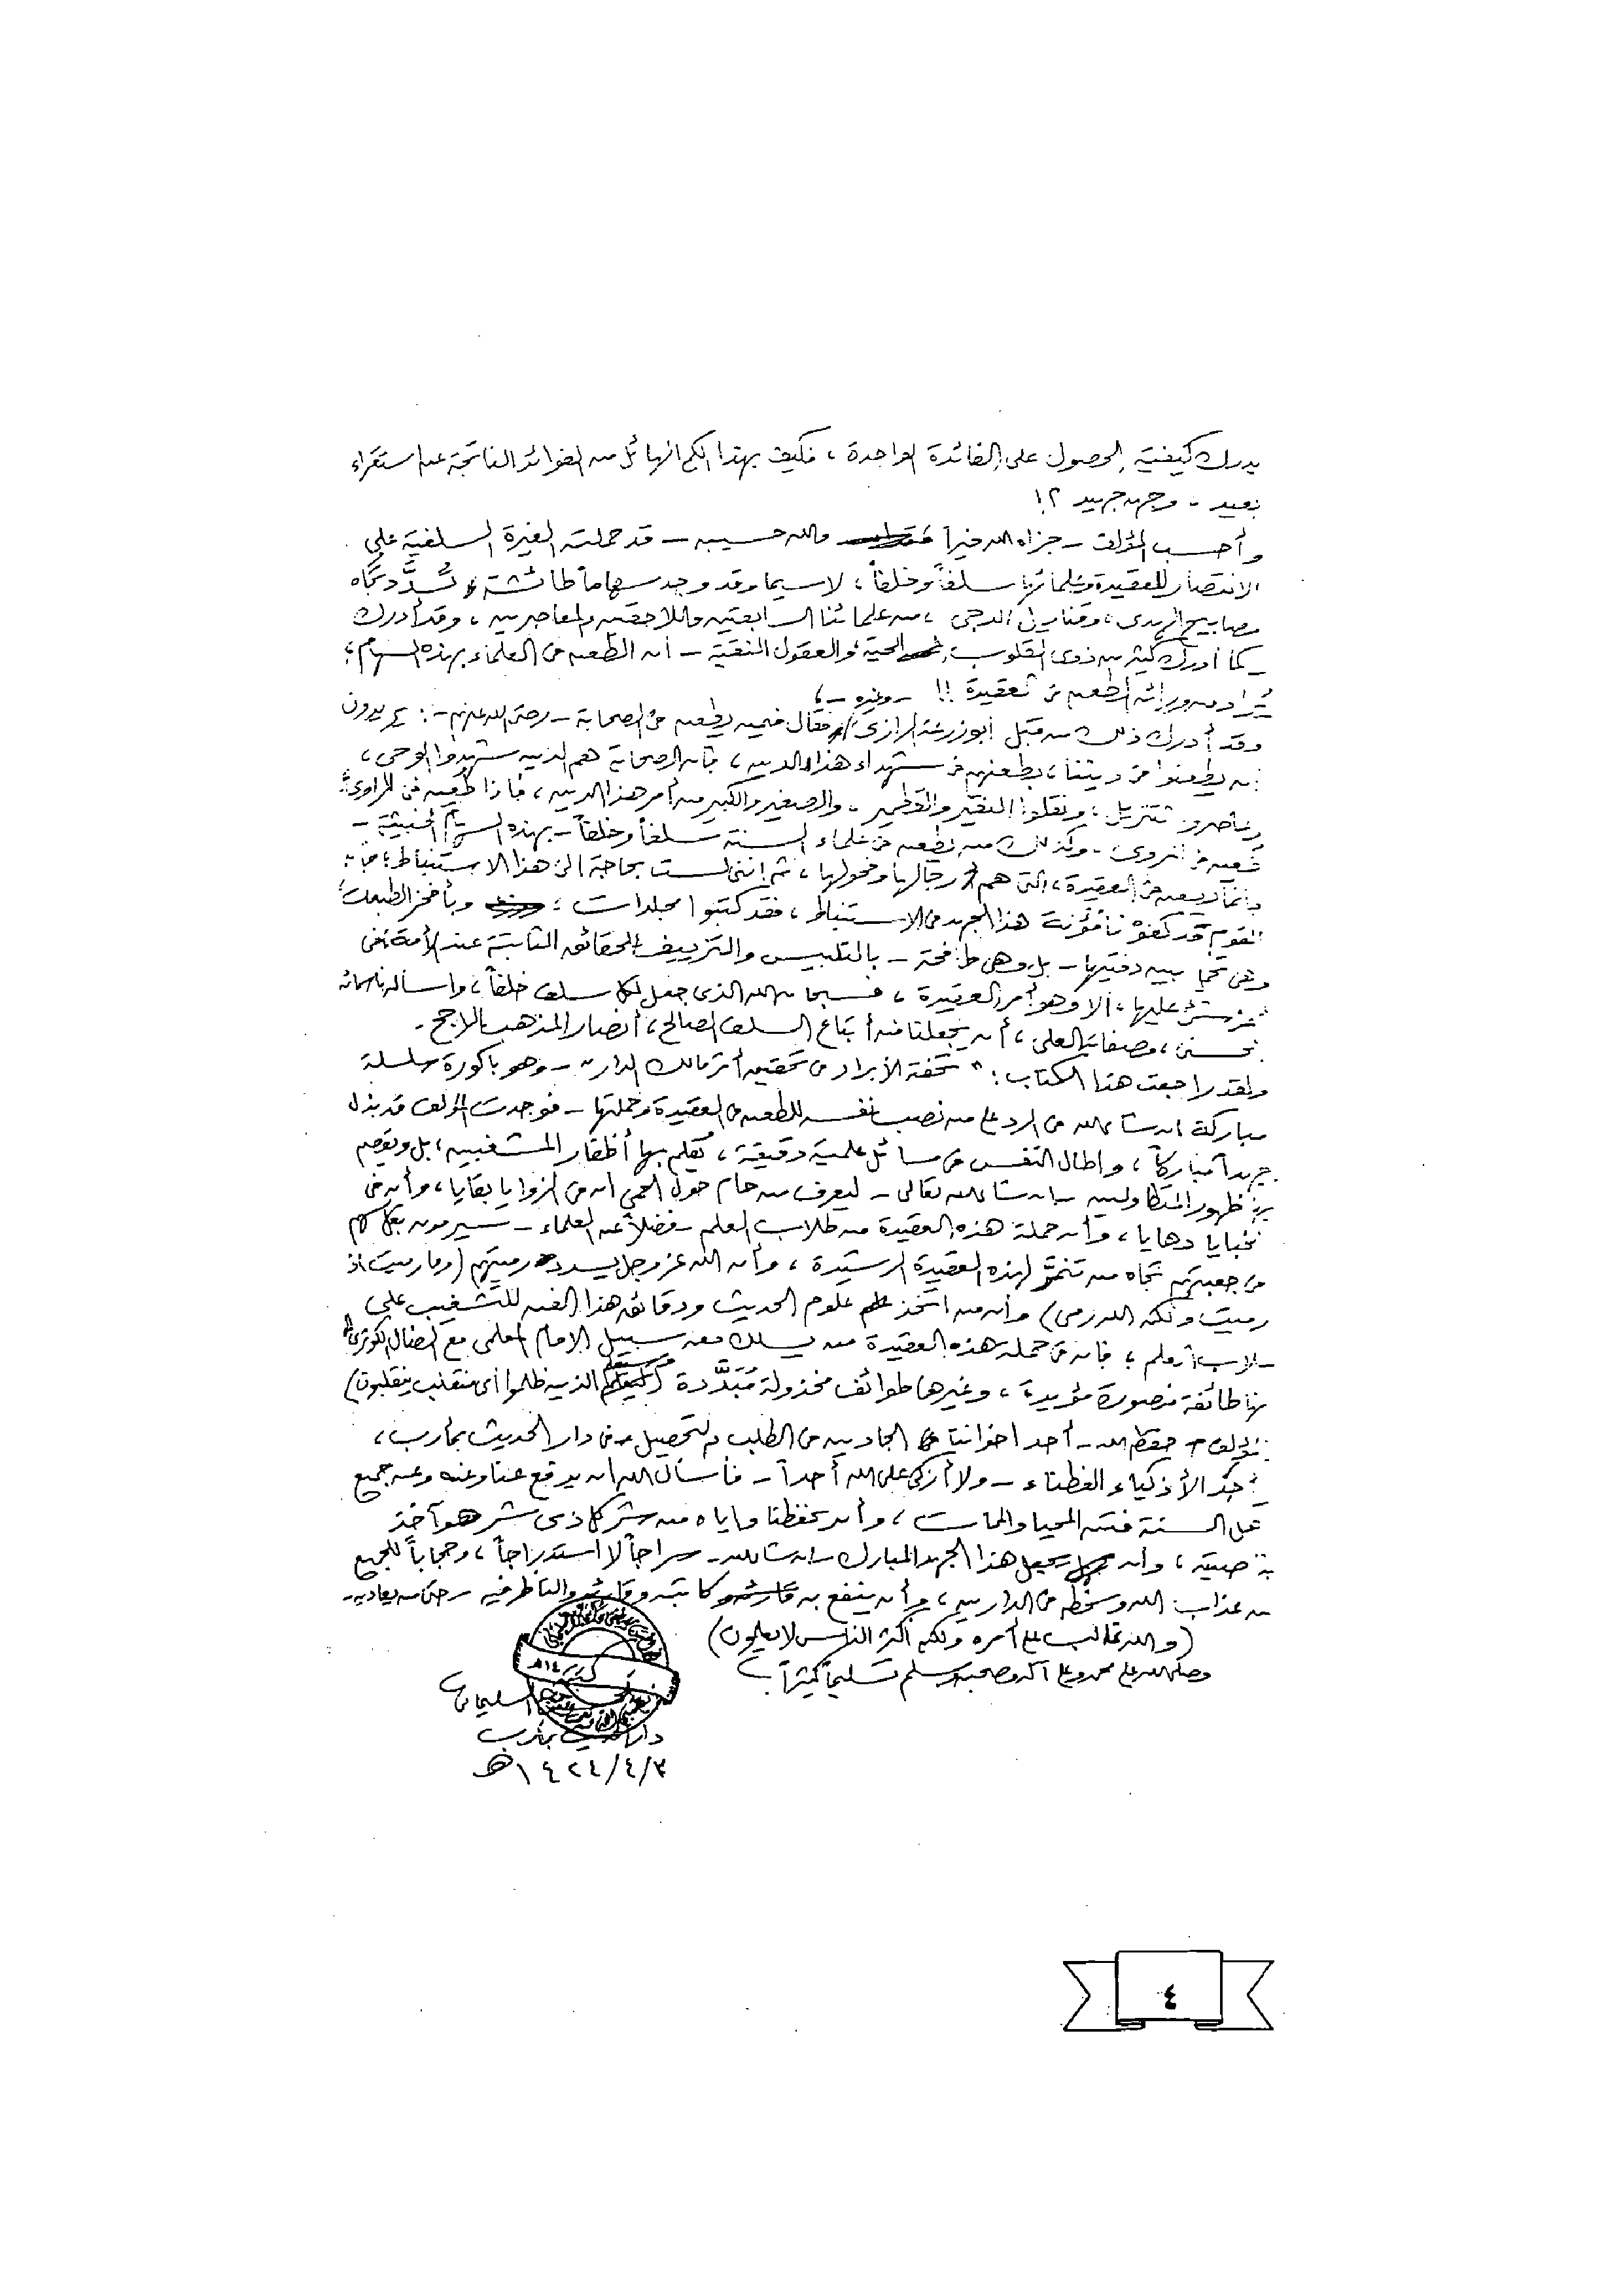 يدرك كيفية الحصول على الفائدة الواحدة ، فكيف بهذا الكم الهائل من الفوائد الناتجة عن استقراء
بعيد ، وجهد جهيد ؟!
وأحسب المؤلف - جزاه الله خيراً والله حسيبه - قد حملته الغيرة السلفية على
الانتصار للعقيدة وعلمائها سلفاً وخلفاً ، لاسيما وقد وجد سهاماً طائشة تُسَدَّد تجاه
مصابيح الهدى ، وقناديل الدجى ، من علمائنا السابقين واللاحقين والمعاصرين ، وقد أدرك
- كما أدرك كثير من ذوي القلوب الحية ، والعقول النقية - أن الطعن في العلماء بهذه السهام ؛
يُراد من ورائه الطعن في العقيدة !! - وغيره - ؛
وقد أدرك ذلك من قبل أبو زرعة الرازي فقال فيمن يطعن في الصحابة - رضي الله عنهم - : يريدون
أن يطعنوا في ديننا ، بطعنهم في شهداء هذا الدين ، فإن الصحابة هم الذين شهدوا الوحي ،
وعاصروا التنزيل ، ونقلوا النقير والقطمير ، والصغير والكبير من أمر هذا الدين ، فإذا طُعِن في الراوي ؛
طُعِن في المروي ، وكذلك من يطعن في علماء السنة سلفاً وخلفاً - بهذه السهام الخبيثة -
فإنما يطعن في العقيدة ، التي هم رجالها وفحولها ، ثم إنني لست بحاجة إلى هذا الاستنباط ؛ فإن
القوم قد كفونا مؤنة هذا الجهد في الاستنباط ، فقد كتبوا مجلدات ؛ وبأفخر الطبعات ؛
وهي تحمل بين دفتيها - بل وهي طافحة - بالتلبيس والتزييف للحقائق الثابتة عند الأمة في
أعز شيء عليها ، ألا وهو أمر العقيدة ، فسبحان الله الذي جعل لكل سلف خلفاً ، وأسأله بأسمائه
الحسنى ، وصفاته العلى ، أن يجعلنا من أتباع السلف الصالح ، أنصار المذهب الراجح .
ولقد راجعت هذا الكتاب : " تحفة الأبرار في تحقيق أثر مالك الدار " - وهو باكورة سلسلة
مباركة إن شاء الله في الرد على من نصب نفسه للطعن في العقيدة وحملتها - فوجدت المؤلف قد بذل
جهداً مباركاً ، وأطال النفس في مسائل علمية دقيقة ، يُقلم بها أظفار المشغبين ، بل ويقصم
بها ظهور المتطاولين - إن شاء الله تعالى - ليعرف من حام حول الحمى أن في الزوايا بقايا ، وأن في
الخبايا دهايا ، وأن حملة هذه العقيدة من طلاب العلم - فضلاً عن العلماء - سيرمون بكل سهم
في جعبتهم تجاه من تنمَّر لهذه العقيدة الرشيدة ، وأن الله عز وجل يسدد رميتهم (وما رميت إذ
رميت ولكن الله رمى) وأن من اتخذ علوم الحديث ودقائق هذا الفن للتشغيب على
طلاب العلم ؛ فإن في حملة هذه العقيدة من يسلك معه سبيل الإمام المعلمي مع الضال الكوثري !!
إنها طائفة منصورة مؤيدة ، وغيرها طوائف مخذولة مُبَدَّدة (وسيعلم الذين ظلموا أي منقلب ينقلبون)
المؤلف - حفظه الله - أحد إخواننا الجادين في الطلب والتحصيل في دار الحديث بمأرب ،
وأحد الأذكياء الفطناء - ولا أزكي على الله أحداً - فأسأل الله أن يدفع عنا وعنه وعن جميع
أهل السنة فتن المحيا والممات ، وأن يحفظنا وإياه من شر كل ذي شر هو آخذ
بناصيته ، وأن يجعل هذا الجهد المبارك - إن شاء الله - سراجاً لا استدراجاً ، وحجاباً للجميع
من عذاب الله وسخطه في الدارين ، وأن ينفع به كاتبه وقارئه والناظر فيه - حتى من يعاديه -
(والله غالب على أمره ولكن أكثر الناس لا يعلمون)
وصلى الله على محمد وعلى آله وصحبه وسلم تسليماً كثيراً
السليماني
دار الحديث بمأرب
٣/٤/١٤٢٤هـ
٤